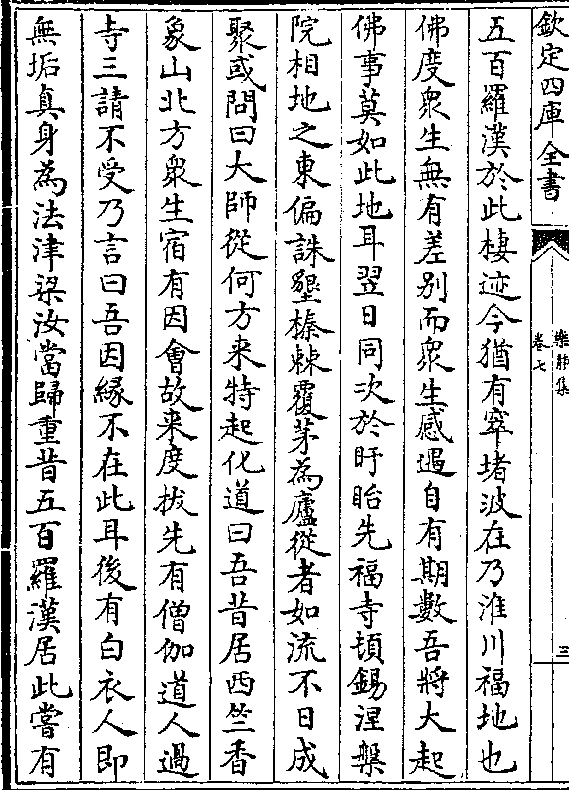 欽定四庫全書
雞肋集
卷七
三
五百羅漢於此棲迹今猶有窣堵波在乃淮川福地也
佛度衆生無有差别而衆生感遇自有期數吾將大起
佛事莫如此地耳翌日同次於盱眙先福寺頓錫涅槃
院相地之東偏誅墾榛棘覆茅為廬從者如流不日成
聚或問曰大師從何方来特起化道曰吾昔居西竺香
象山北方衆生宿有因會故来度拔先有僧伽道人過
寺三請不受乃言曰吾因緣不在此耳後有白衣人即
無垢真身為法津梁汝當歸重昔五百羅漢居此嘗有